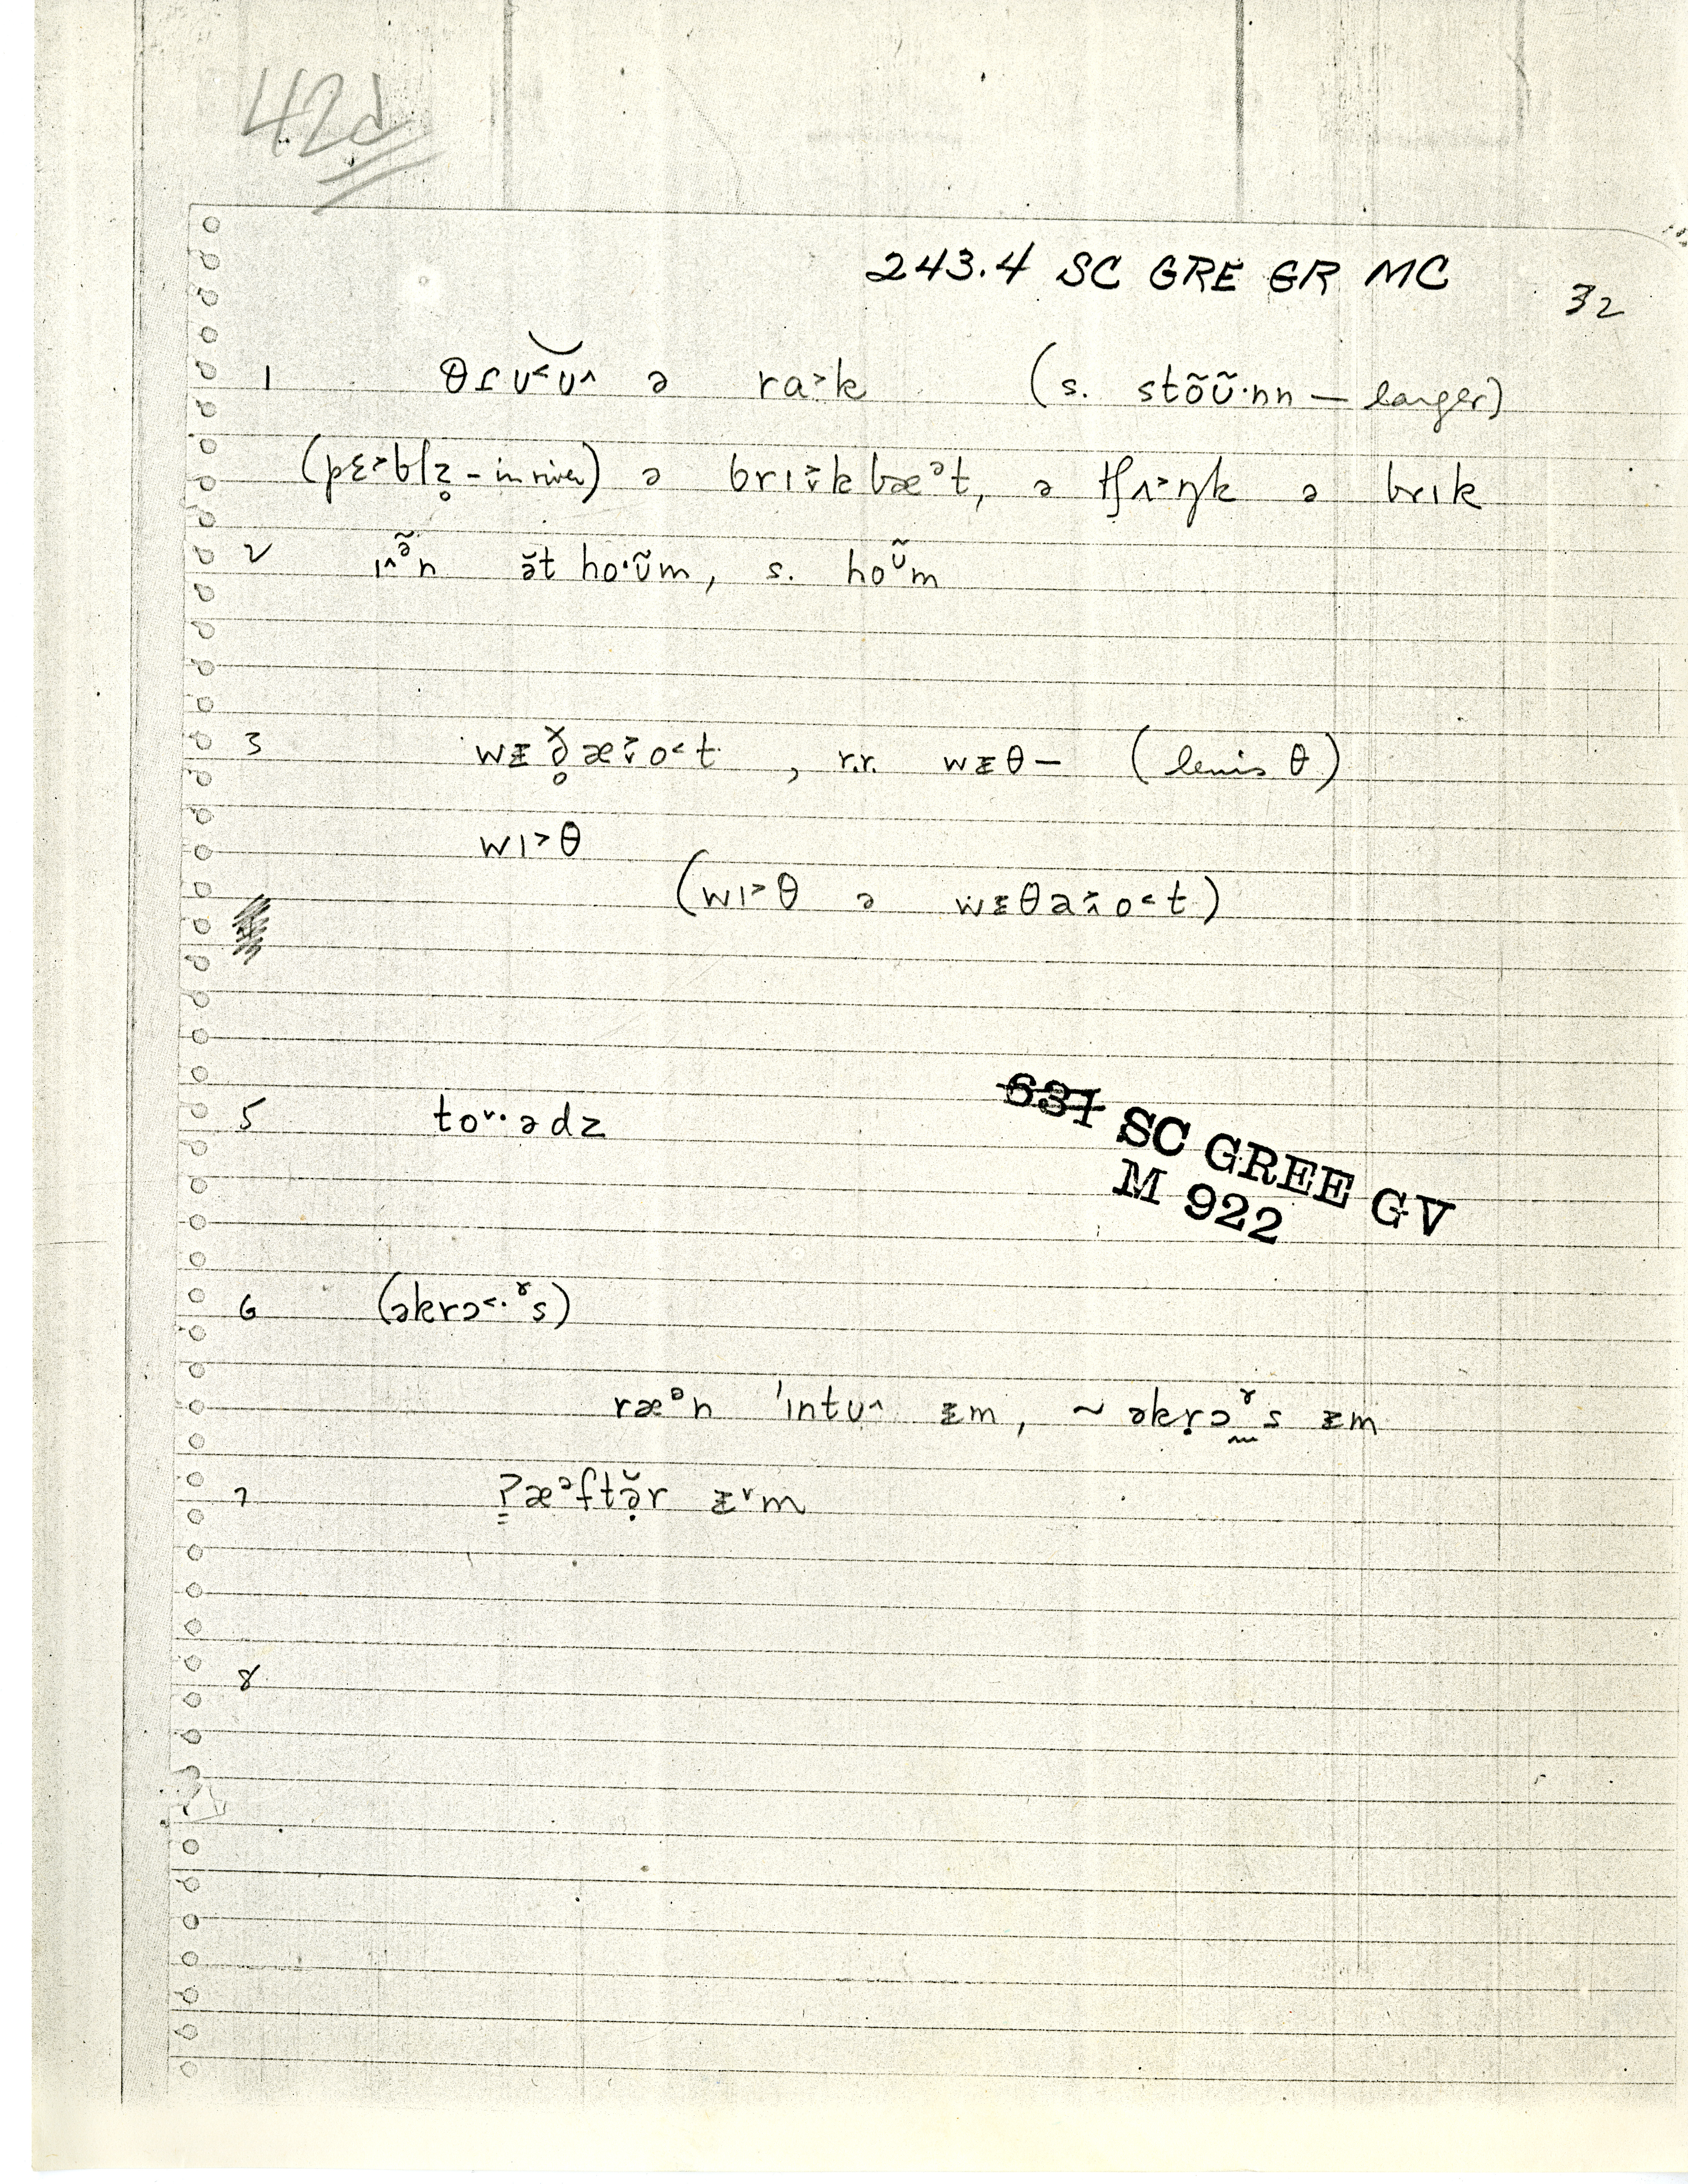 42d
243.4 SC GRE GR MC
32
1 θɾu˂u˄ ə ra˃k (s. stõũ·nn — larger)
(pɛ˃blz̥ - in river) ə brɪ˃̬k bæᵊt, ə tʃʌ˃ŋk ə brɪk
2 ɪ˄ᵊ̃n ə̆t ho·ʊ̃m, s. hoᶷ̃m
3 wᵻð̥̆æ˃̬o˂t, r.r. wᵻθ— (lenis θ)
wɪ˃θ
(wɪ˃θ ə wᵻθa˃̭o˂t)
5 to˅·ədz
637 SC GREE GV
M 922
6 (əkrɔ˂·ˠs)
ræᵊn ˈɪntu˄ ᵻm, ~ əkṛɔ̰ˠs ᵻm
7 ʔ̳æᵊftə̣̆r ᵻ˅m
8